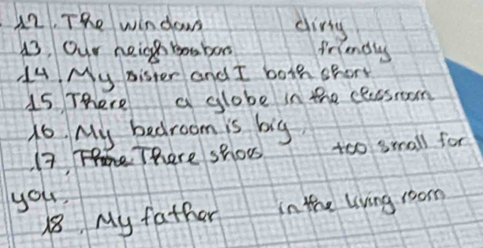 12. The windows dirty
13. Our neighbours friendly
14. My sister and I both short
15. There a globe in the classroom
16. My bedroom is big.
17. There shoes too small for
you.
18. My father in the living room